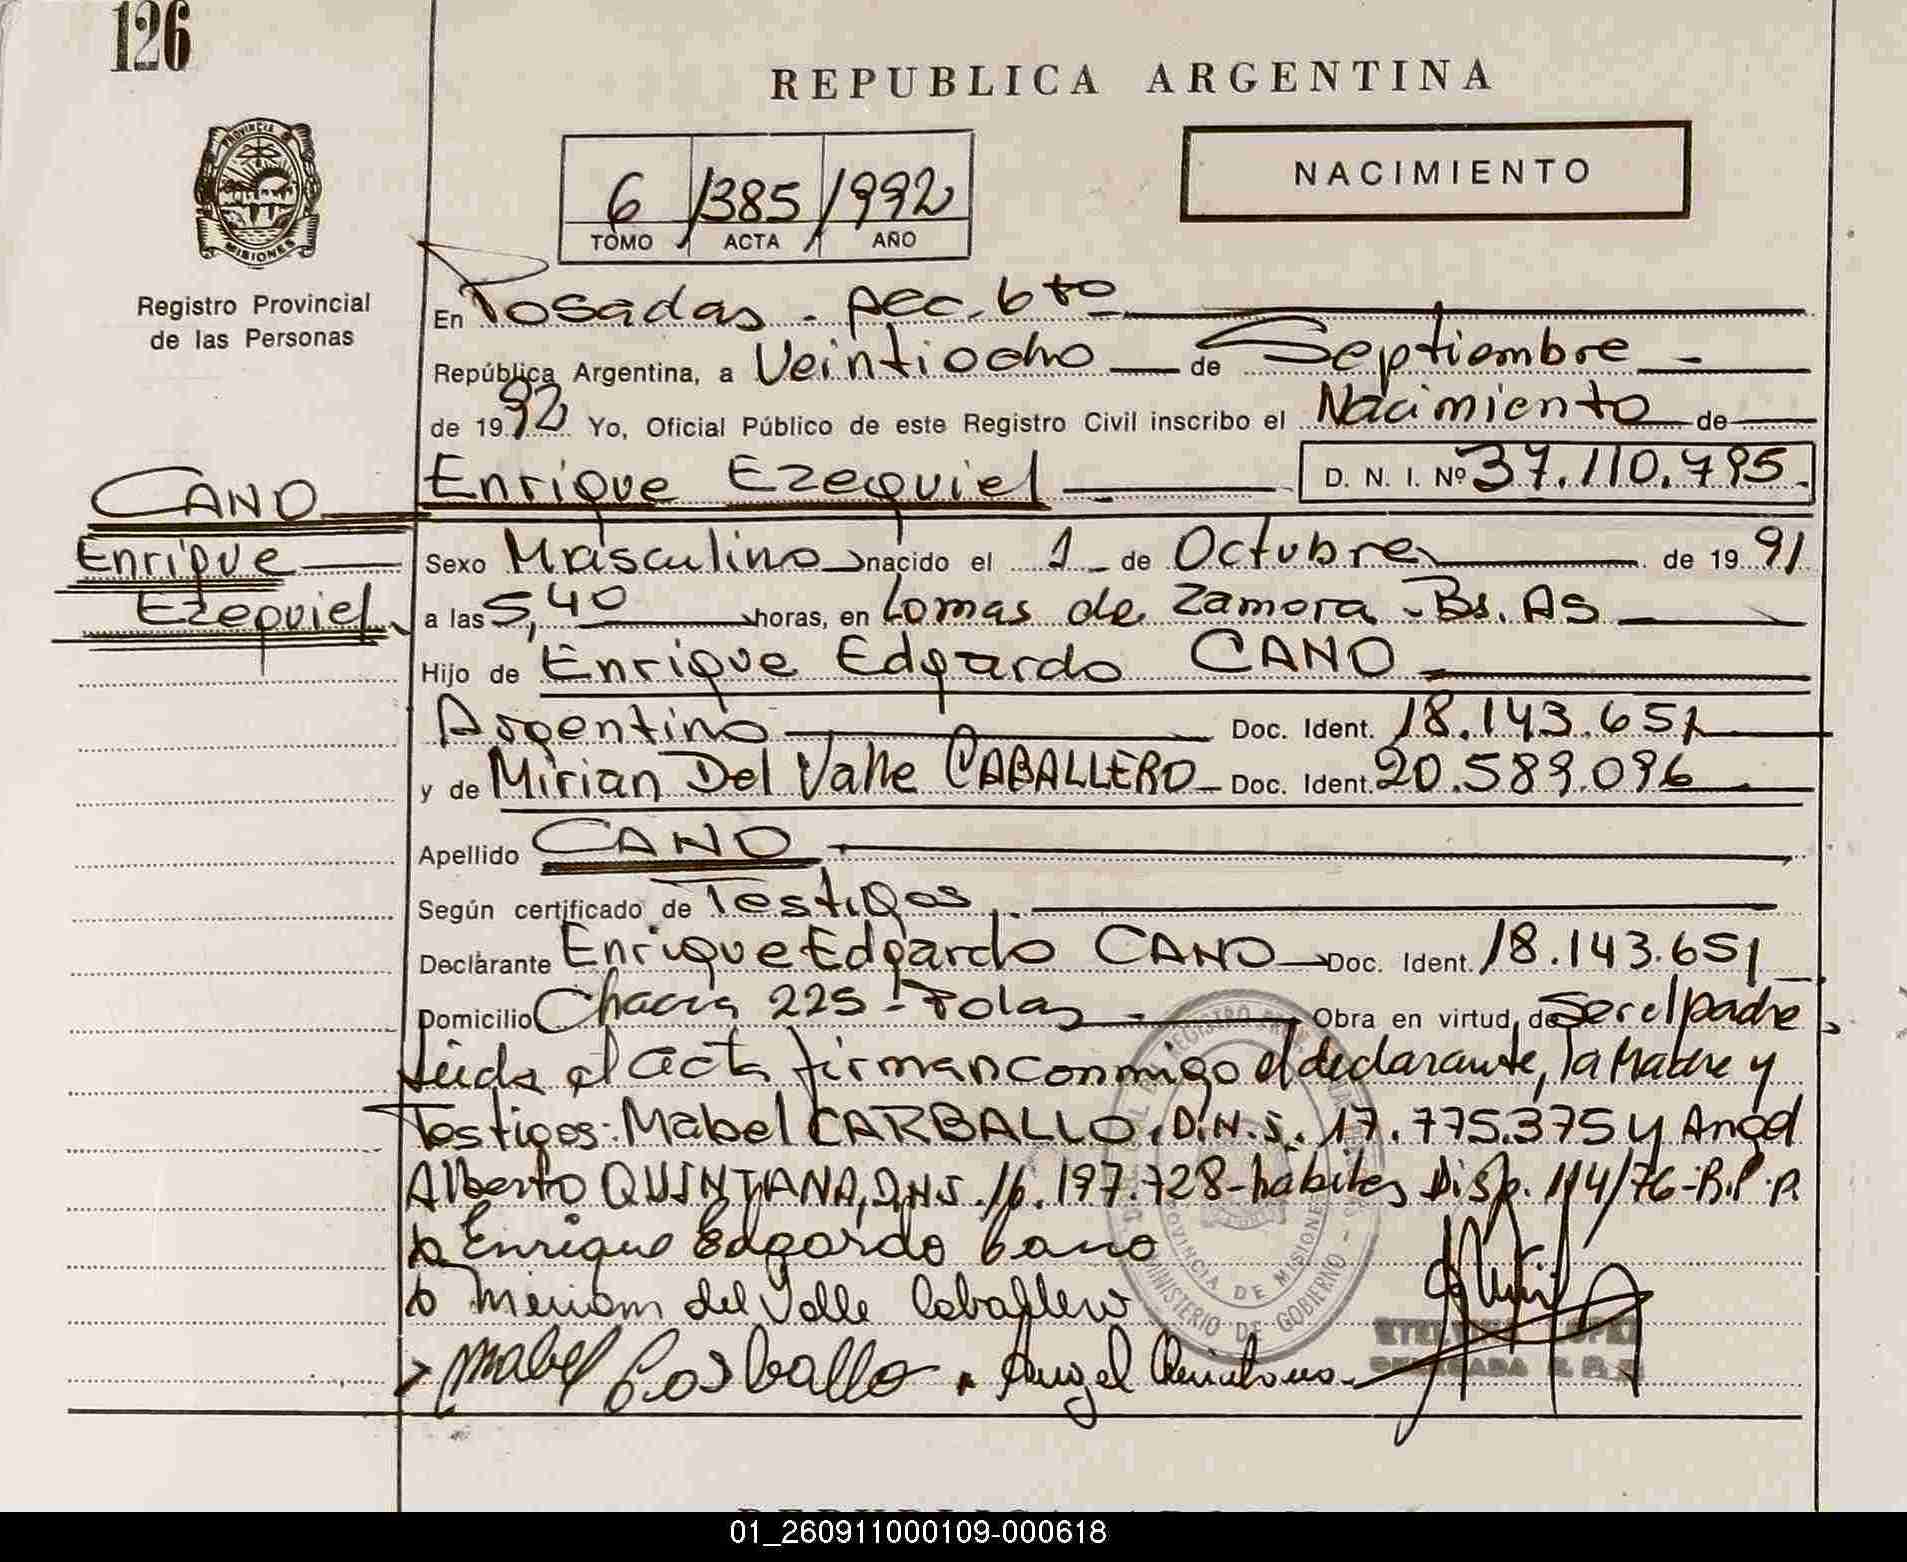 126
REPUBLICA ARGENTINA
NACIMIENTO
6 1385 1992
TOMO ACTA AÑO
PROVINCIA
MISIONES
Registro Provincial
de las Personas
En Posadas - Secc. 6ta
República Argentina, a Veintiocho de Septiembre -
de 1992 Yo, Oficial Público de este Registro Civil inscribo el Nacimiento de
Enrique Ezequiel D. N. I. Nº 37.110.795.
CANO
Enrique
Ezequiel
Sexo Masculino nacido el 1 - de Octubre de 1991
a las 5,40 horas, en Lomas de Zamora - Bs. AS
Hijo de Enrique Edgardo CANO
Argentino Doc. Ident. 18.143.651
y de Mirian Del Valle CABALLERO - Doc. Ident. 20.589.096
Apellido CANO
Según certificado de Testigos
Declarante Enrique Edgardo CANO Doc. Ident. 18.143.651
Domicilio Chacra 225 - Pdas - Obra en virtud de Ser el padre
Leida el acta firman conmigo el declarante, la Madre y
Testigos: Mabel CARBALLO, D.N.I. 17.775.375 y Angel
Alberto QUINTANA, D.N.I. 16.197.728 - habiles Disp. 114/76 - R.P.P.
Enrique Edgardo Cano
Miriam del Valle Caballero
Mabel Carballo. Angel Quintana
PROVINCIA DE MISIONES
MINISTERIO DE GOBIERNO
01_260911000109-000618